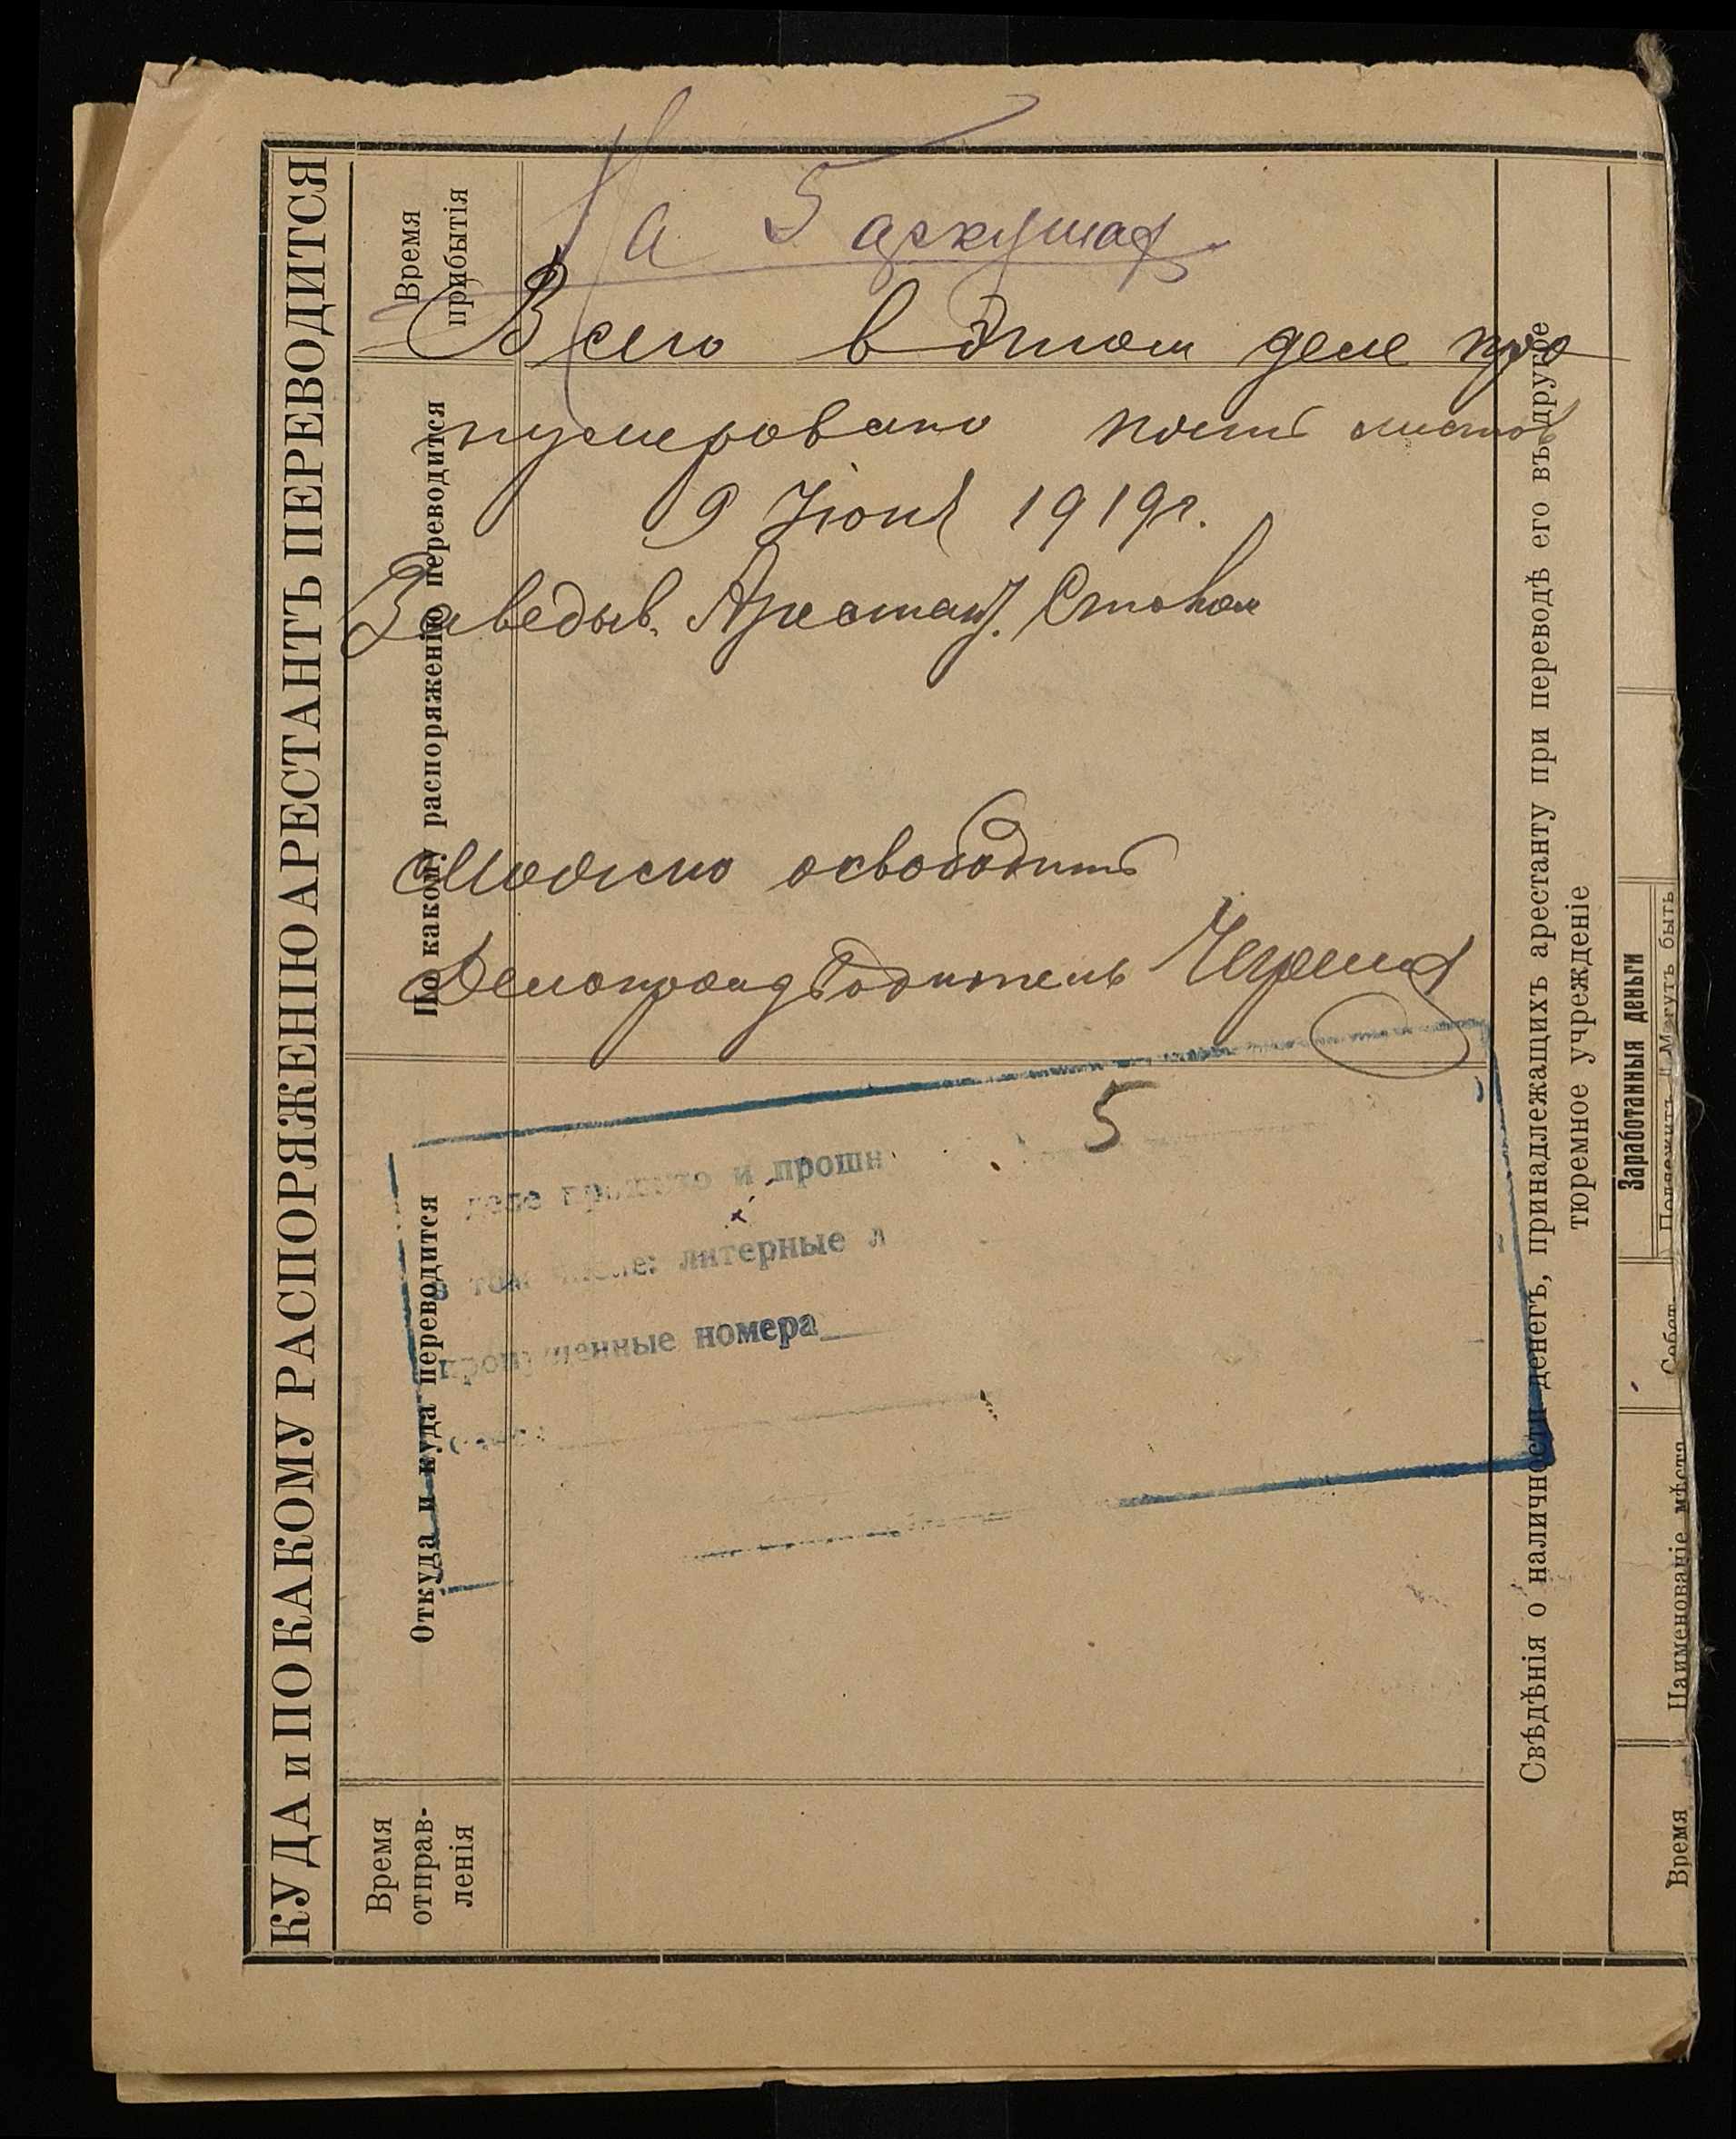 На 5 аркушах
Всего в этом деле про
нумеровано пять листов
9 Июня 1919 г.
Заведыв. Арестант. Столом
Можно освободить
Делопроизводитель
КУДА и ПО КАКОМУ РАСПОРЯЖЕНІЮ АРЕСТАНТЪ ПЕРЕВОДИТСЯ
Время
прибытія
По какому распоряженію переводится
Откуда и куда переводится
Время
отправ-
ленія
5
деле прошито и прошн
в том числе: литерные л
пропущенные номера
Свѣдѣнія о наличности денегъ, принадлежащихъ арестанту при переводѣ его въ другое
тюремное учрежденіе
Заработанныя деньги
Подлежитъ Могутъ быть
Собст.
Наименованіе мѣста
Время